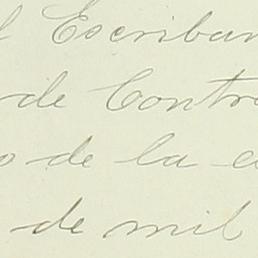 l Escriban
de Contra
o de la c
de mil